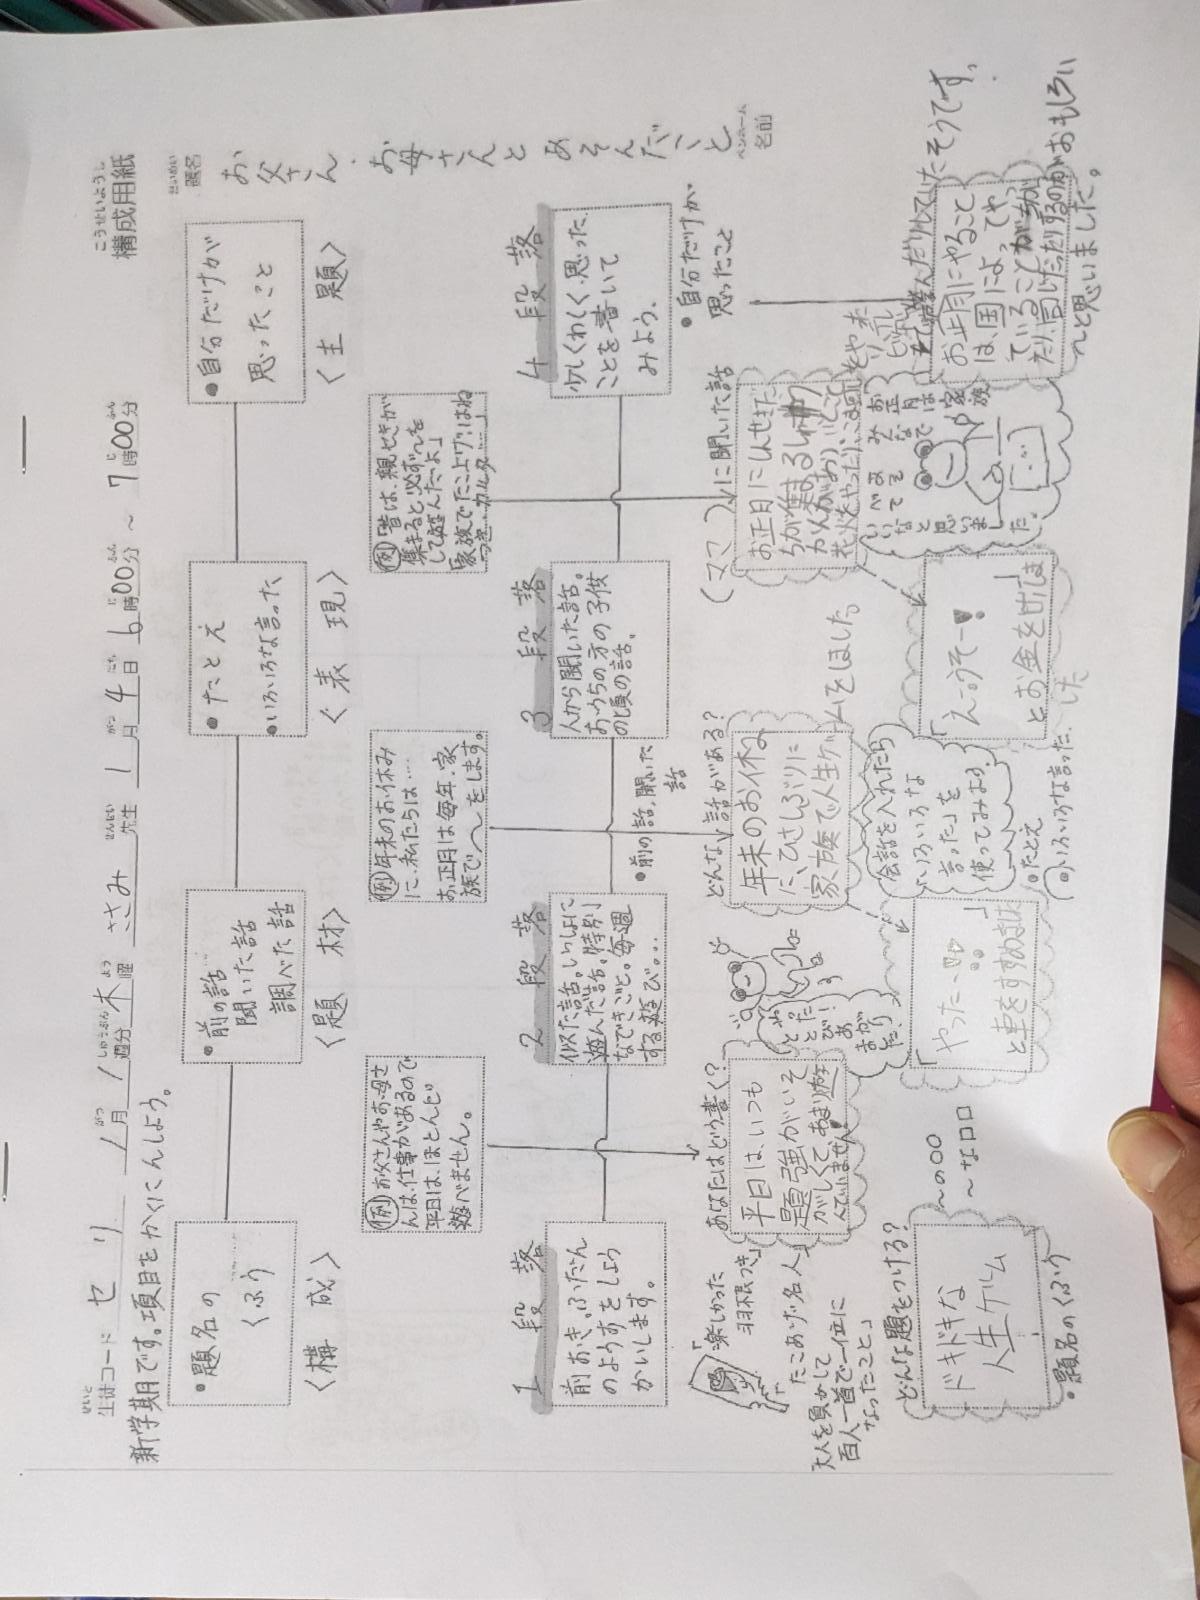 こうせいようし
構成用紙
せいと
生徒コード セリ 1月1週分 木曜 ささみ先生 1月4日 6時00分 ~ 7時00分
新学期です。項目をかくにんしよう。
だいめい
題名
お父さん・お母さんとあそんだこと
ペンネーム
名前
・題名の
くふう
〈構 成〉
・前の話
聞いた話
調べた話
〈題 材〉
・たとえ
・いろいろな言った
〈表 現〉
・自分だけが
思ったこと
〈主 題〉
例 お父さんやお母さ
んは、仕事があるので
平日は、ほとんど
遊べません。
例 年末のお休み
に、私たちは……
お正月は毎年、家
族で〜をします。
例 「昔は、親せきが
集まると、必ず〜を
して遊んだよ」
家族でたこ上げ・はね
つき・カルタ……」
1 段落
前おき。ふだん
のようすをしょう
かいします。
2 段落
似た話。いっしょに
遊んだ話。特別
なできごと。毎週
する遊び。…
3 段落
人から聞いた話。
おうちの方の子供
の頃の話。
4 段落
少しくわしく思った
ことを書いて
みよう。
・前の話、聞いた
話
・自分だけが
思ったこと
あなたはどう書く?
平日は、いつも
題強がいそ
がしくて、あまり遊
んでいません。
どんな話がある?
年末のお休み
に、ひさしぶりに
家族で人生ゲ
ームをしました。
(ママ)に聞いた話
お正月にしんせきた
ちが集まる
花火をやったり、
遊んだりしていたそうです。
お正月にやること
は、国によってや
っていることがちが
だり、聞いただするのがおもしろい
〜と思いました。
お正月は家族
みんなで
いいなと思いました。
「楽しかった
羽根つき」
「たこあげ名人」
「大人を負かして
百人一首で一位に
なったこと」
どんな題をつける?
〜の〇〇
〜な口口
ドキドキな
人生ゲーム
・題名のくふう
「やったー」
と車をすすめました
会話を入れたら
「いろいろな
言った」を
使ってみよう。
・たとえ
・いろいろな言った
「えーうそー!」
とお金を出しま
した